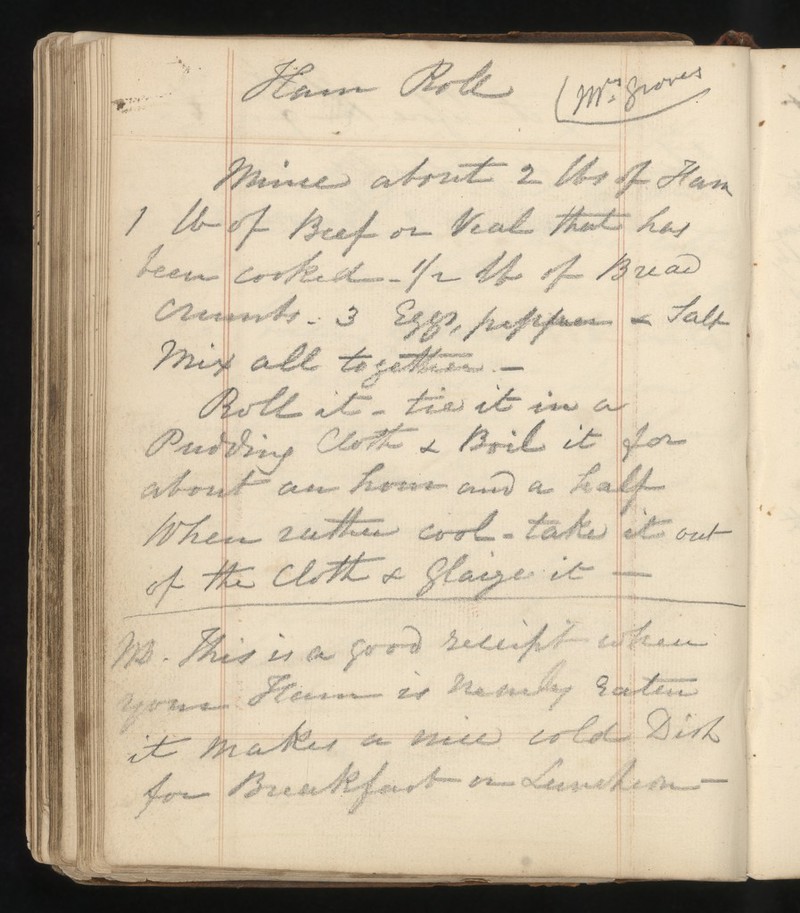 Ham Roll (Mrs. Groves
Mince about 2 lbs of Ham
1 lb of Beef or Veal that has
been cooked - 1/2 lb of Bread
Crumbs - 3 Eggs, pepper & Salt
Mix all together -
Roll it - tie it in a
Pudding Cloth & Boil it for
about an hour and a half
When rather cool - take it out
of the Cloth & Glaize it —
NB. This is a good receipt when
your Ham is nearly Eaten
it makes a nice cold Dish
for Breakfast or Luncheon —